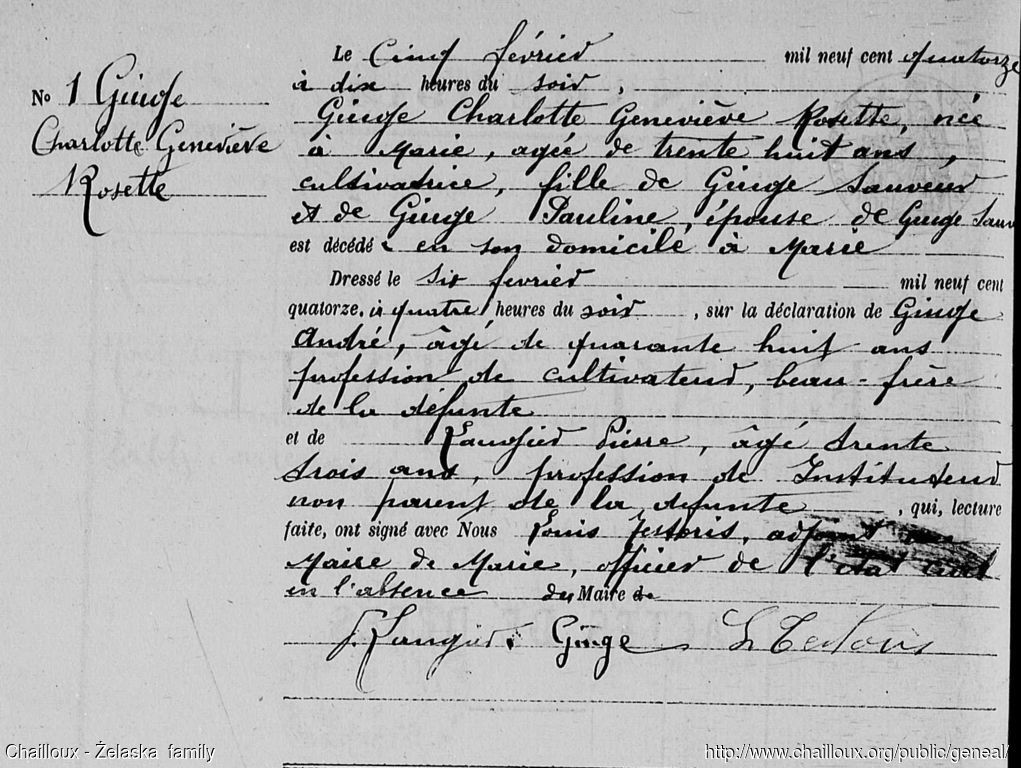 N° 1 Giuge
Charlotte Geneviève
Rosette
Le Cinq février mil neuf cent quatorze
à dix heures du soir,
Giuge Charlotte Geneviève Rosette, née
à Marie, agée de trente huit ans,
cultivatrice, fille de Giuge Sauveur
et de Giuge Pauline, épouse de Giuge Sauv
est décédée en son domicile à Marie
Dressé le six fevrier mil neuf cent
quatorze, à quatre heures du soir, sur la déclaration de Giuge
André, âgé de quarante huit ans
profession de cultivateur, beau-frère
de la défunte
et de Laugier Pierre, âgé trente
trois ans, profession de Instituteur
non parent de la defunte, qui, lecture
faite, ont signé avec Nous Louis adjoint
Maire de Marie, officier de l'état civil
en l'absence du Maire de
P. Laugier Giuge
Chailloux - Želaska family
http://www.chailloux.org/public/geneal/